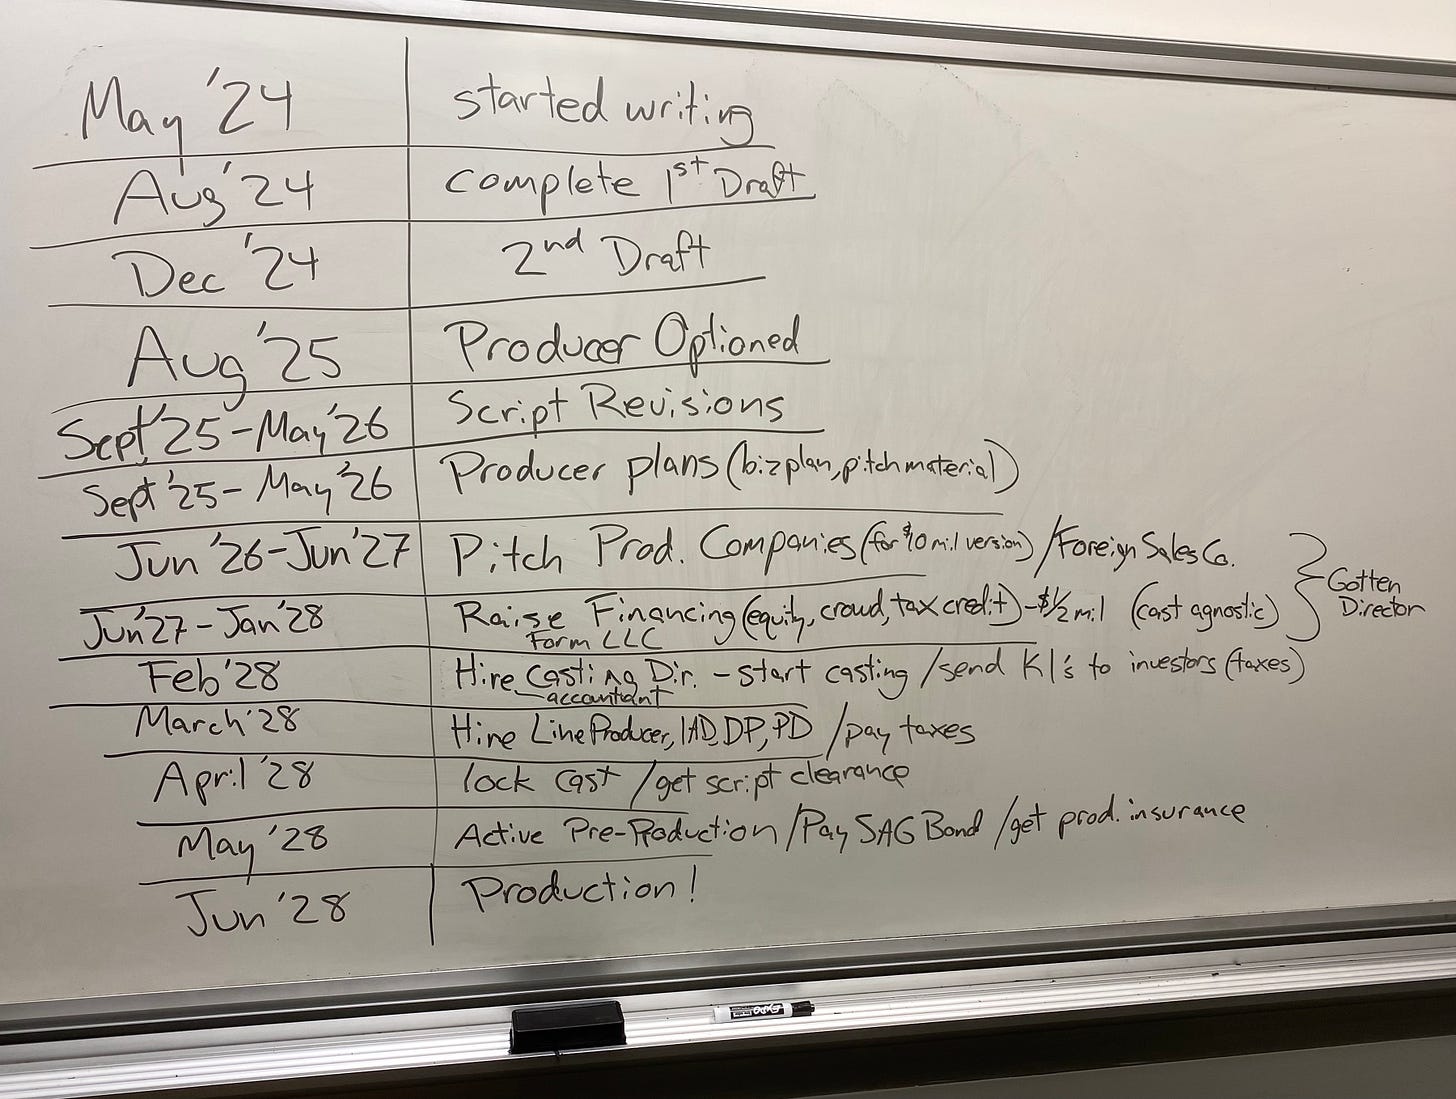 May '24 started writing
Aug '24 Complete 1st Draft
Dec '24 2nd Draft
Aug '25 Producer Optioned
Sept '25 - May '26 Script Revisions
Sept '25 - May '26 Producer plans (biz plan, pitch material)
Jun '26 - Jun '27 Pitch Prod. Companies (for $10 mil version) / Foreign Sales Co.
Jun '27 - Jan '28 Raise Financing (equity, crowd, tax credit) - $1/2 mil (cast agnostic)
Form LLC
} Gotten
Director
Feb '28 Hire Casting Dir. - start casting / send K1's to investors (taxes)
accountant
March '28 Hire Line Producer, 1AD, DP, PD / pay taxes
April '28 lock cast / get script clearance
May '28 Active Pre-Production / Pay SAG Bond / get prod. insurance
Jun '28 Production!